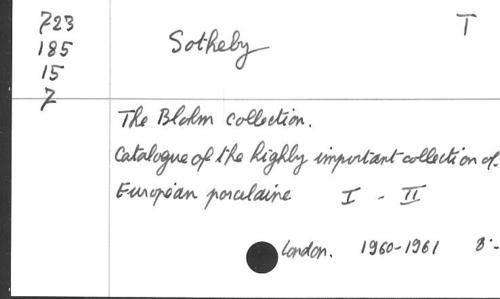 723
185
15
7
Sotheby
T
The Blohm collection.
Catalogue of the highly important collection of
European porcelaine I - II
London. 1960-1961 8:-